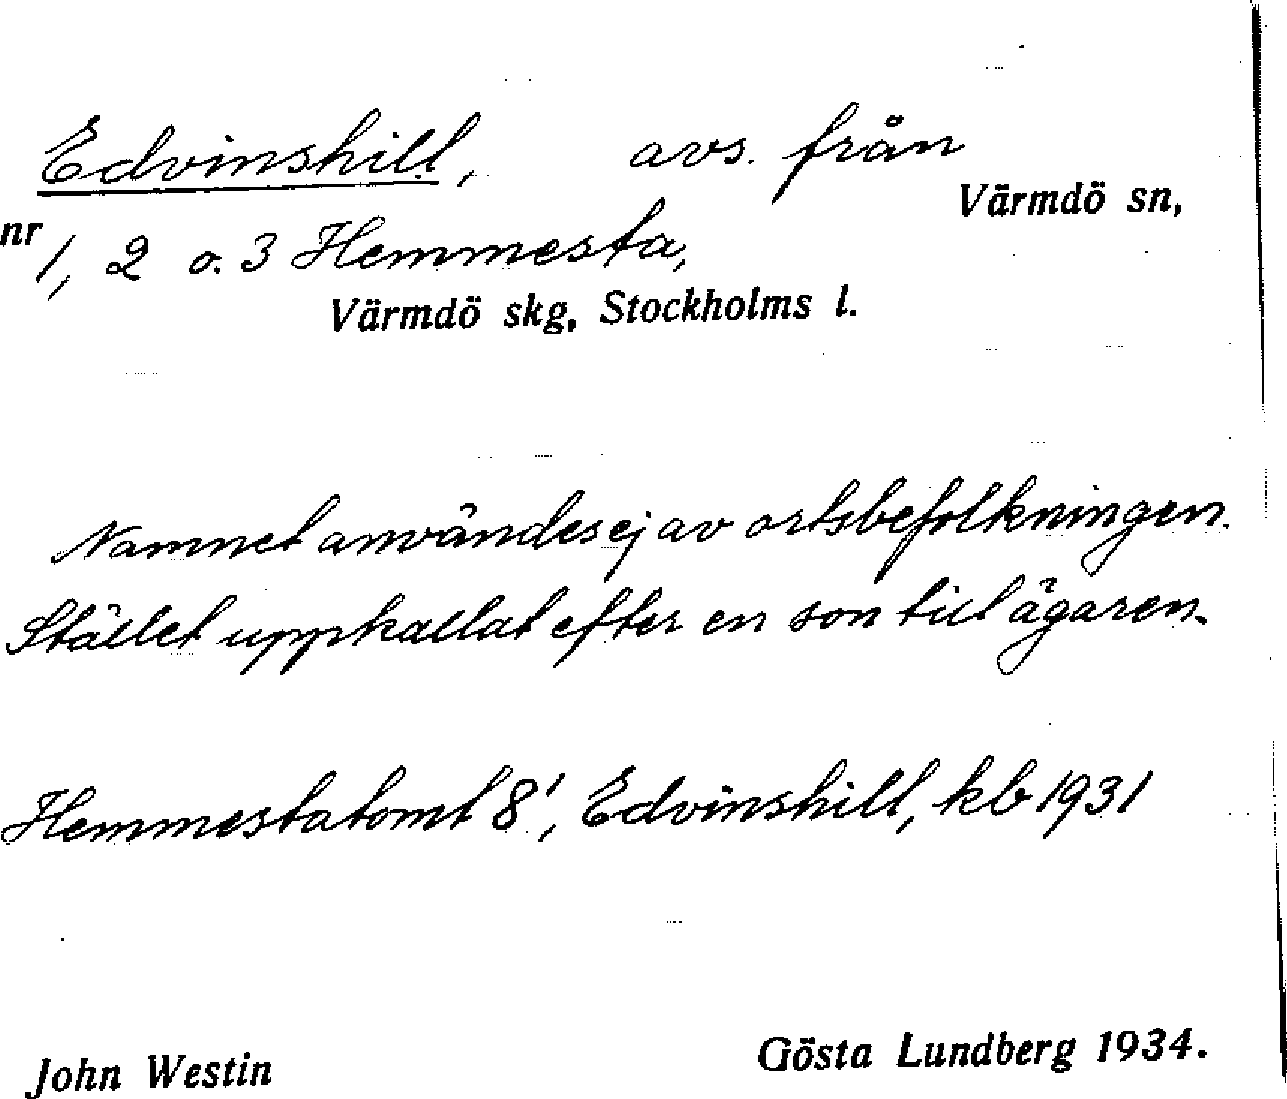 Edvinshill, avs. från
Värmdö sn,
nr 1, 2 o. 3 Hemmesta,
Värmdö skg, Stockholms l.
Namnet användes ej av ortsbefolkningen.
Stället uppkallat efter en son till ägaren.
Hemmestatomt 8', Edvinshill, kb 1931
John Westin Gösta Lundberg 1934.